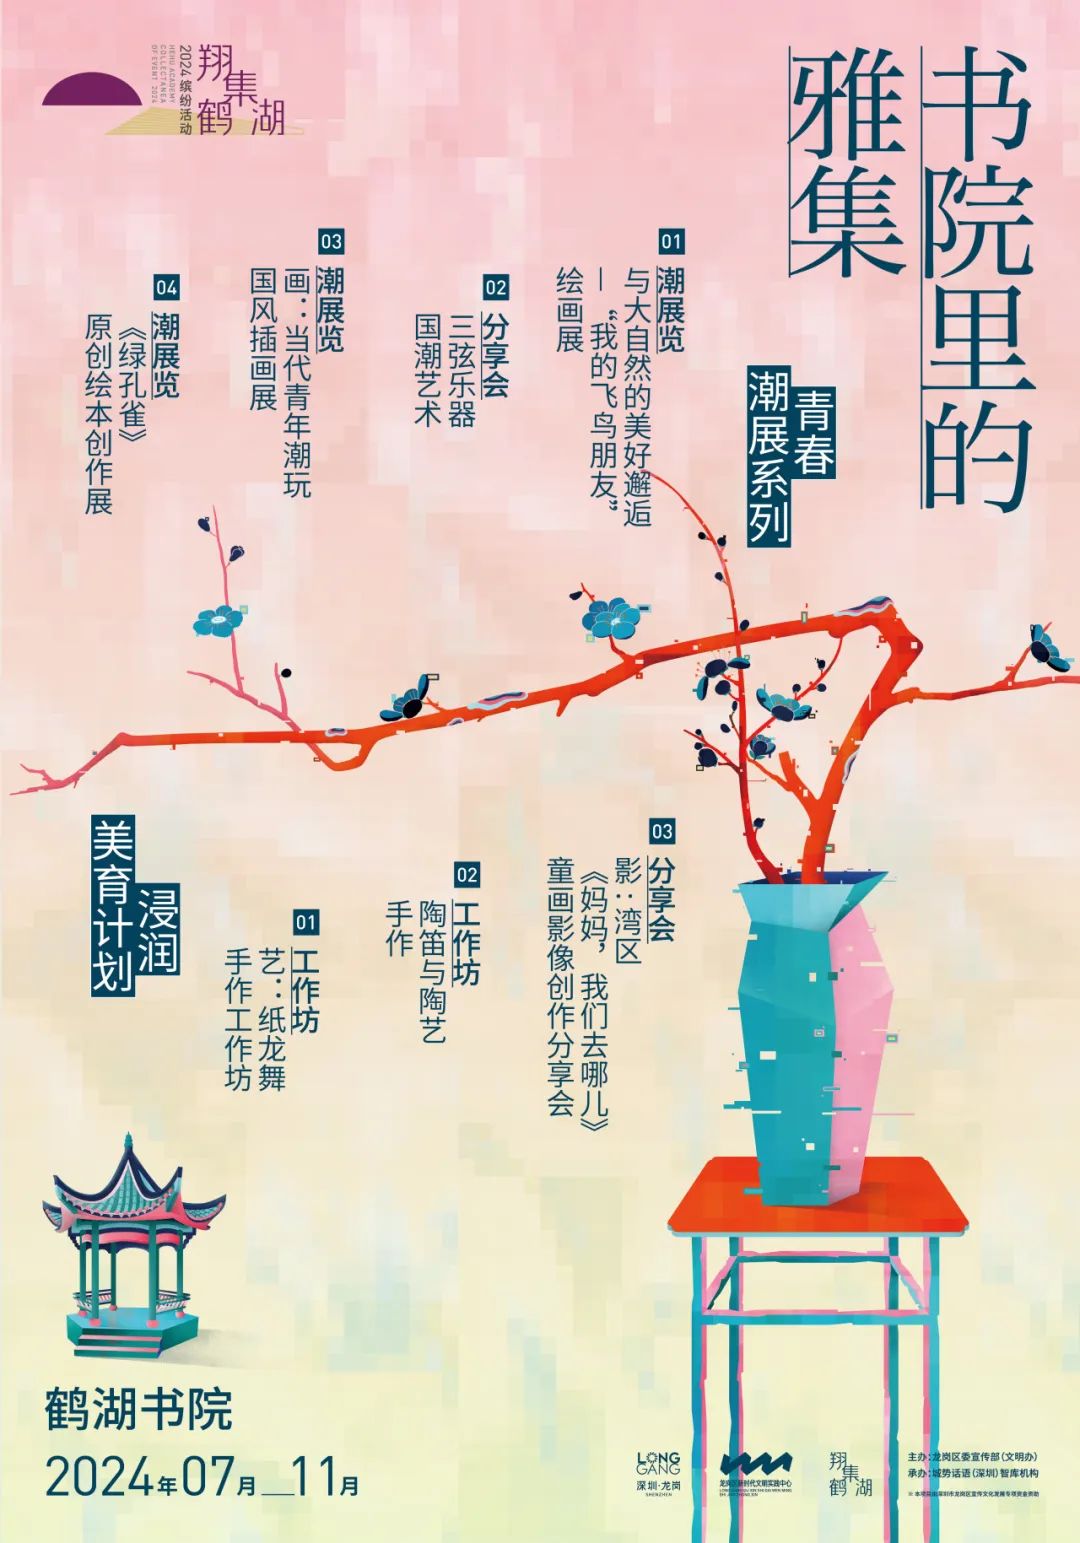 书院里的
雅集
翔集
鹤湖
2024缤纷活动
HEHU ACADEMY
COLLECTANEA
OF EVENT 2024
青春
潮展系列
01
潮展览
与大自然的美好邂逅
—“我的飞鸟朋友”
绘画展
02
分享会
三弦乐器
国潮艺术
03
潮展览
画：当代青年潮玩
国风插画展
04
潮展览
《绿孔雀》
原创绘本创作展
浸润
美育计划
01
工作坊
艺：纸龙舞
手作工作坊
02
工作坊
陶笛与陶艺
手作
03
分享会
影：湾区
《妈妈，我们去哪儿》
童画影像创作分享会
鹤湖书院
2024年07月__11月
LONG
GANG
深圳·龙岗
SHENZHEN
龙岗区新时代文明实践中心
翔集
鹤湖
主办：龙岗区委宣传部（文明办）
承办：城势话语（深圳）智库机构
※ 本项目由深圳市龙岗区宣传文化发展专项资金资助